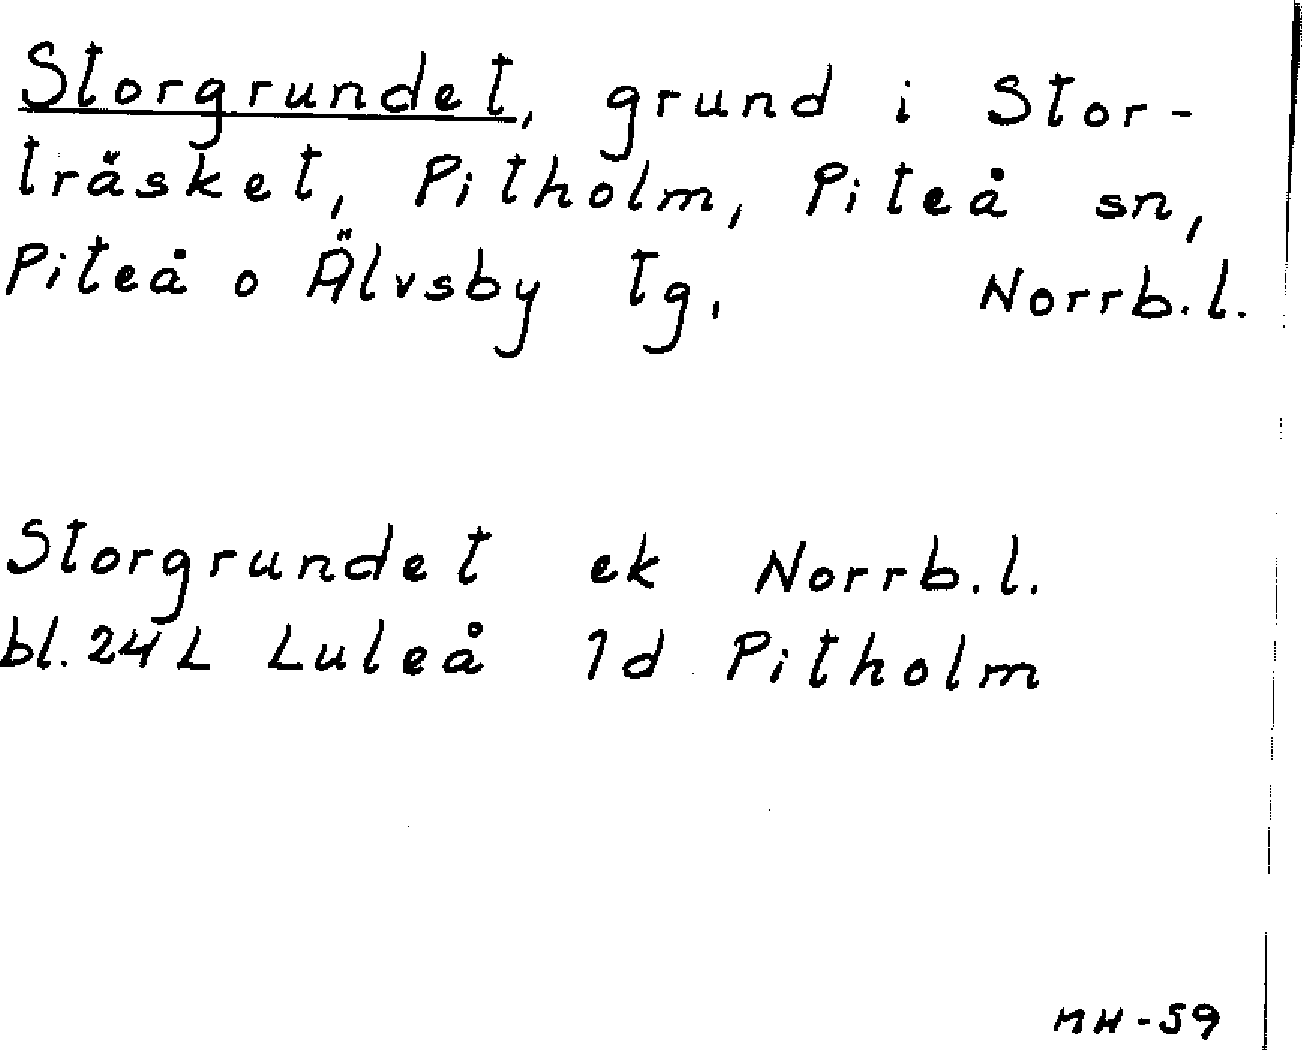 Storgrundet, grund i Stor-
träsket, Pitholm, Piteå sn,
Piteå o Älvsby tg, Norrb.l.
Storgrundet ek Norrb.l.
bl. 24 L Luleå 1d Pitholm
MH-59